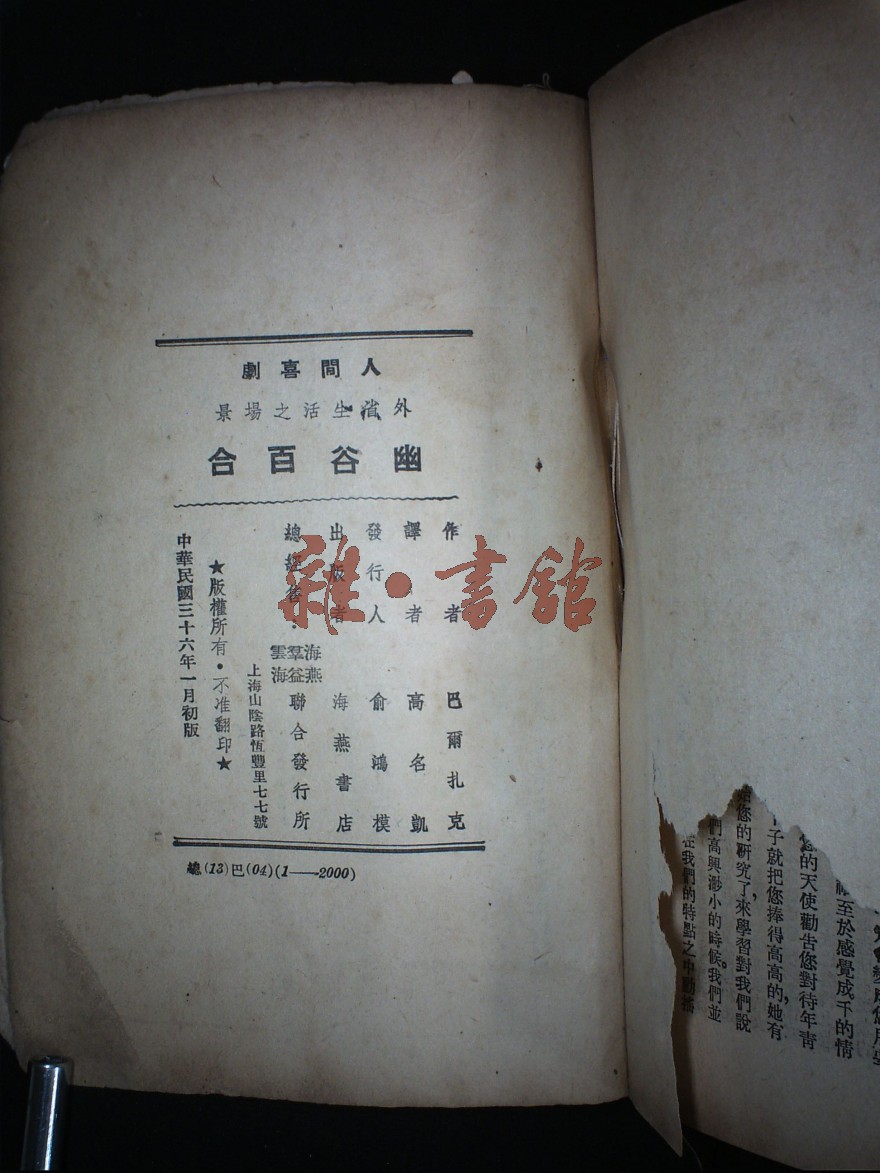 人間喜劇
外省生活之場景
幽谷百合
作者 巴爾扎克
譯者 高名凱
發行人 俞鴻模
出版者 海燕書店
總經售 海燕 羣益 雲海 聯合發行所
上海山陰路恆豐里七七號
★版權所有·不准翻印★
中華民國三十六年一月初版
總(13)巴(04)(1—→2000)
雜·書館
至於感覺成千的情
的天使勸告您對待年青
子就把您捧得高高的,她有
您的研究了來學習對我們說
們高興渺小的時候。我們並
在我們的特點之中